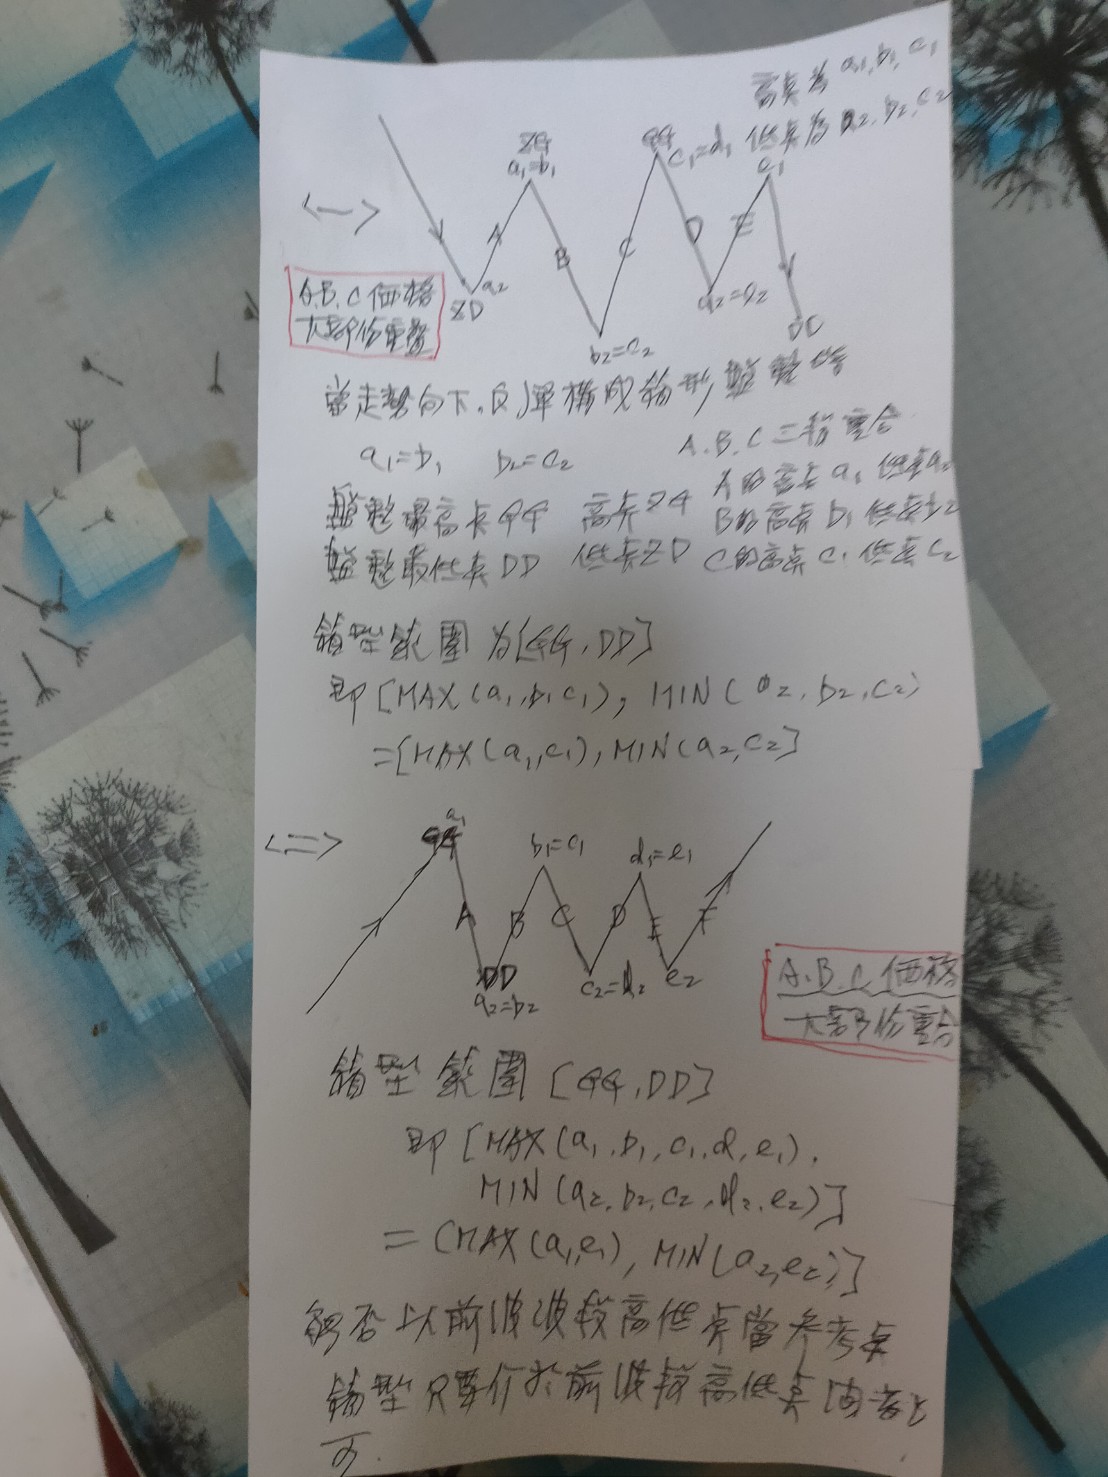 高点為 a1, b1, c1
低点為 a2, b2, c2
ZG
a1=b1
GG
c1=d1
e1
<—>
A
B
C
D
E
a2
ZD
b2=c2
d2=e2
DD
A.B.C 価格
大部份重疊
當走勢向下.反彈構成箱形盤整時
a1=b1 b2=c2
A.B.C 三段重合
A的高点 a1 低点a2
B的高点 b1 低点b2
C的高点 c1 低点 c2
盤整最高点GG 高点ZG
盤整最低点DD 低点ZD
箱型範圍 为[GG,DD]
即[MAX(a1,b1,c1), MIN(a2,b2,c2)
=[MAX(a1,c1),MIN(a2,c2]
<=>
a1
GG
b1=c1
d1=e1
A
B
C
D
E
F
DD
a2=b2
c2=d2
e2
A.B.C 価格
大部份重合
箱型範圍[GG,DD]
即[MAX(a1,b1,c1,d1,e1),
MIN(a2,b2,c2,d2,e2)]
=(MAX(a1,e1), MIN(a2,e2)]
能否以前波波段高低点當参考点
箱型只要介於前波段高低点
可.